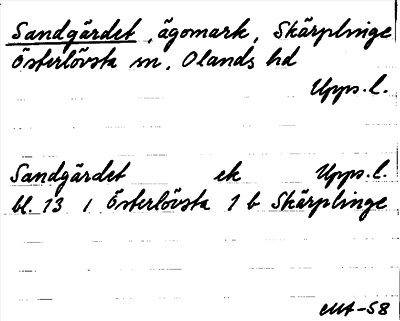 Sandgärdet, ägomark, Skärplinge
Österlövsta sn, Olands hd
Upps.l.
Sandgärdet ek Upps.l.
bl. 13 i Österlövsta 1 b Skärplinge
MA-58